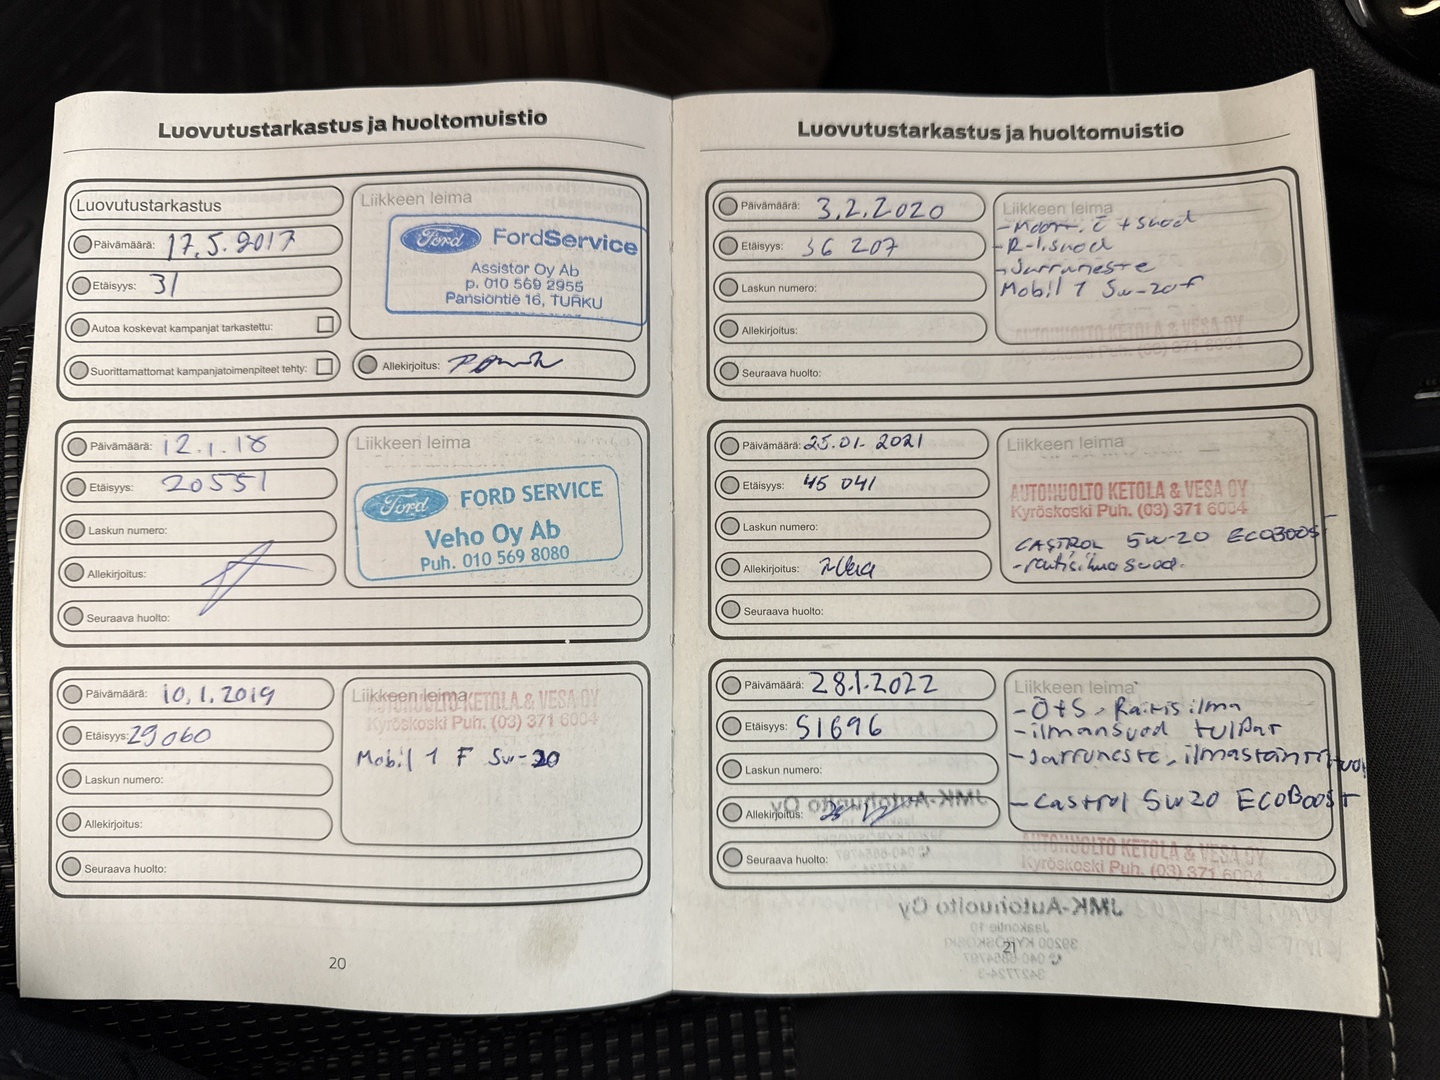 Luovutustarkastus ja huoltomuistio
Luovutustarkastus
Päivämäärä: 17.5.2017
Etäisyys: 31
Autoa koskevat kampanjat tarkastettu:
Suorittamattomat kampanjatoimenpiteet tehty:
Liikkeen leima
Ford FordService
Assistor Oy Ab
p. 010 569 2955
Pansiontie 16, TURKU
Allekirjoitus:
Päivämäärä: 12.1.18
Etäisyys: 20551
Laskun numero:
Allekirjoitus:
Seuraava huolto:
Liikkeen leima
Ford FORD SERVICE
Veho Oy Ab
Puh. 010 569 8080
Päivämäärä: 10.1.2019
Etäisyys: 29060
Laskun numero:
Allekirjoitus:
Seuraava huolto:
Liikkeen leima
AUTOHUOLTO KETOLA & VESA OY
Kyröskoski Puh. (03) 371 6004
Mobil 1 F 5w-20
20
Luovutustarkastus ja huoltomuistio
Päivämäärä: 3.2.2020
Etäisyys: 36 207
Laskun numero:
Allekirjoitus:
Seuraava huolto:
Liikkeen leima
- Moott. Ö + suod
- R-I.suod
- Jarruneste
Mobil 1 5w-20 F
AUTOHUOLTO KETOLA & VESA OY
Kyröskoski Puh. (03) 371 6004
Päivämäärä: 25.01.2021
Etäisyys: 45 041
Laskun numero:
Allekirjoitus:
Seuraava huolto:
Liikkeen leima
AUTOHUOLTO KETOLA & VESA OY
Kyröskoski Puh. (03) 371 6004
CASTROL 5W-20 ECOBOOST
- raitisilmasuod.
Päivämäärä: 28.1.2022
Etäisyys: 51696
Laskun numero:
Allekirjoitus:
Seuraava huolto:
Liikkeen leima
- Ö+S, Raitisilma
- ilmansuod tulpat
- Jarruneste, ilmastointi
- Castrol 5w20 ECOBOOST
AUTOHUOLTO KETOLA & VESA OY
Kyröskoski Puh. (03) 371 6004
JMK-Autohuolto Oy
JMK-Autohuolto Oy
Jaakontie 10
39200 KYRÖSKOSKI
040-6854797
3427724-3
21